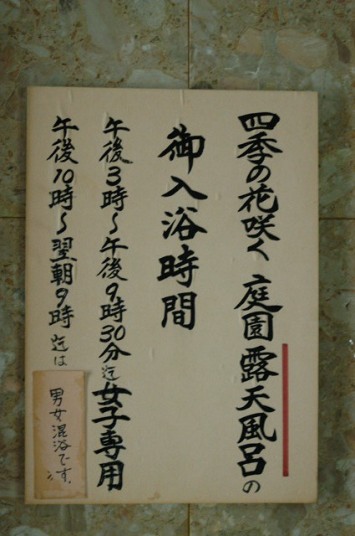 四季の花咲く庭園露天風呂の
御入浴時間
午後3時～午後9時30分迄女子専用
午後10時～翌朝9時迄は
男女混浴です。